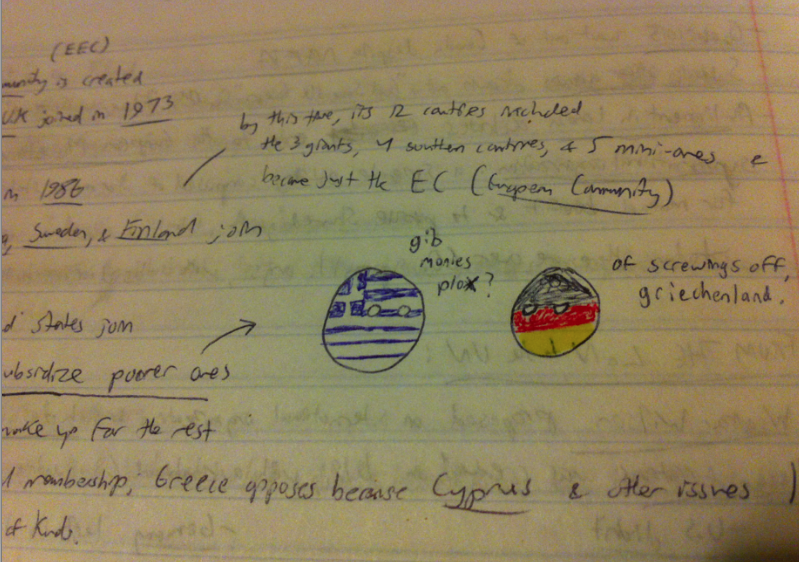 (EEC)
munity is created
UK joined in 1973
by this time, its 12 contries included
the 3 giants, 4 southern contries, & 5 mini-ones &
in 1986
became just the EC (European Community)
, Sweden, & Finland join
gib
monies
plox?
of screwings off,
griechenland.
d states join
ubsidize poorer ones
make up for the rest
membership, Greece opposes because Cyprus & other issues )
of Kurds.